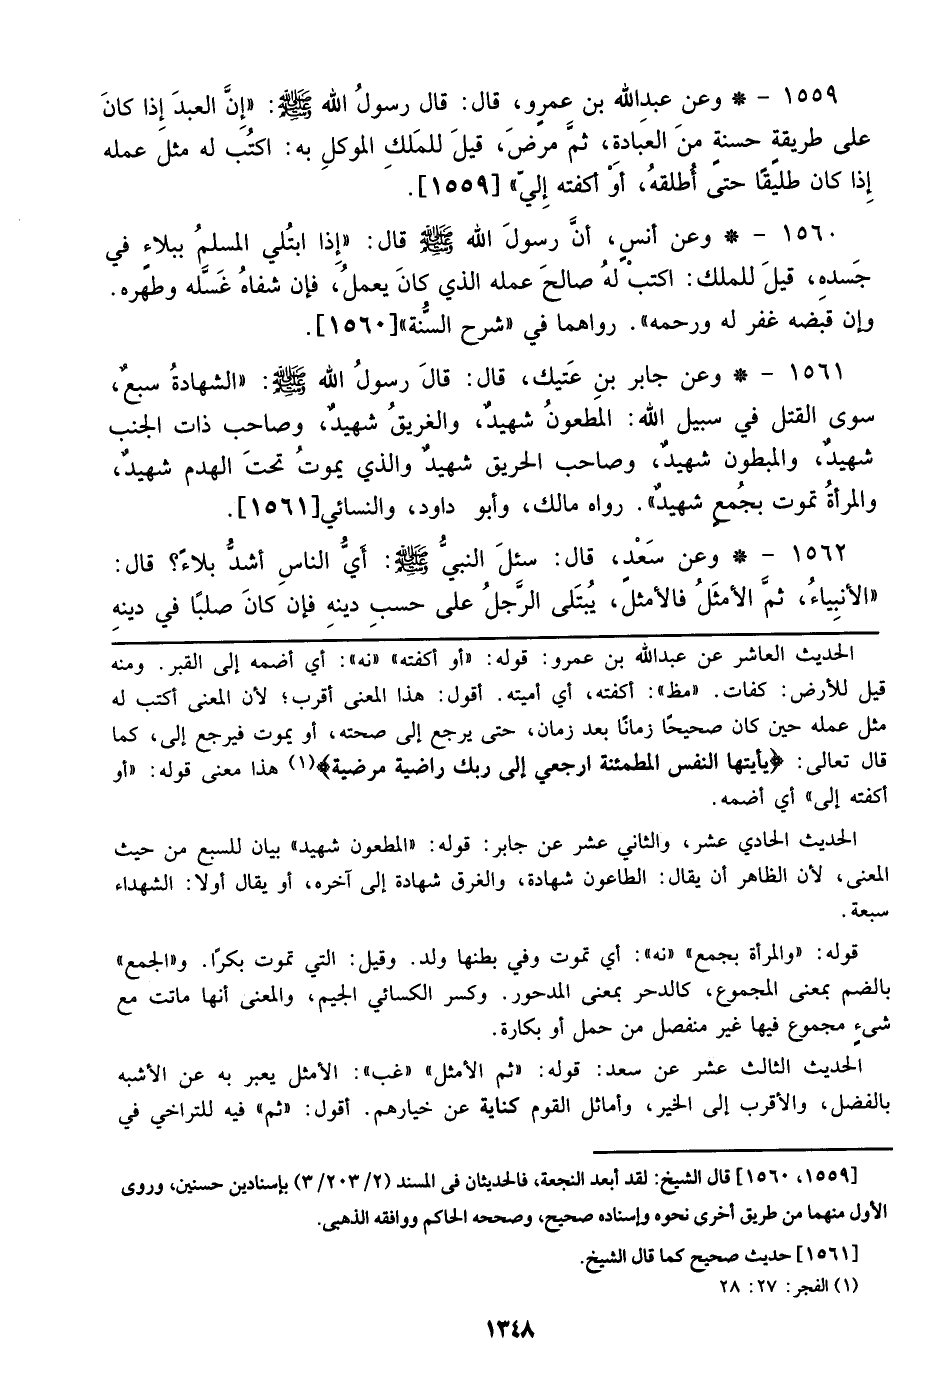 ١٥٥٩ – * وعن عبدِالله بن عمرٍو، قال: قال رسولُ الله ﷺ: «إنَّ العبدَ إذا كانَ
على طريقةٍ حسنةٍ منَ العبادةِ، ثمَّ مرضَ، قيلَ للمَلكِ الموكلِ به: اكتُب له مثلَ عمله
إذا كان طليقًا حتى أُطلقهُ، أوْ أكفته إليّ» [١٥٥٩].
١٥٦٠ – * وعن أنسٍ، أنَّ رسولَ الله ﷺ قال: «إذا ابتُلي المسلمُ ببلاءٍ في
جَسدهِ، قيلَ للملك: اكتبْ لهُ صالحَ عمله الذي كانَ يعملُ، فإن شفاهُ غَسَّله وطهره.
وإن قبضه غفر له ورحمه». رواهما في «شرح السُّنة»[١٥٦٠].
١٥٦١ – * وعن جابر بنِ عَتيك، قال: قالَ رسولُ الله ﷺ: «الشهادةُ سبعٌ،
سوى القتل في سبيل الله: المطعونُ شهيدٌ، والغريقُ شهيدٌ، وصاحب ذات الجنب
شهيدٌ، والمبطون شهيدٌ، وصاحب الحريق شهيدٌ والذي يموتُ تحتَ الهدم شهيدٌ،
والمرأةُ تموت بجُمعٍ شهيدٌ». رواه مالك، وأبو داود، والنسائي[١٥٦١].
١٥٦٢ – * وعن سَعْدٍ، قال: سئلَ النبيُّ ﷺ: أيُّ الناسِ أشدُّ بلاءً؟ قال:
«الأنبِياءُ، ثمَّ الأمثَلُ فالأمثل، يُبتَلى الرَّجلُ على حسبِ دينهِ فإن كانَ صلبًا في دينهِ
الحديث العاشر عن عبدالله بن عمرو: قوله: «أو أكفته» «نه»: أي أضمه إلى القبر. ومنه
قيل للأرض: كفات. «مظ»: أكفته، أي أميته. أقول: هذا المعنى أقرب؛ لأن المعنى أكتب له
مثل عمله حين كان صحيحًا زمانًا بعد زمان، حتى يرجع إلى صحته، أو يموت فيرجع إلى، كما
قال تعالى: ﴿يأيتها النفس المطمئنة ارجعي إلى ربك راضية مرضية﴾(١) هذا معنى قوله: «أو
أكفته إلى» أي أضمه.
الحديث الحادي عشر، والثاني عشر عن جابر: قوله: «المطعون شهيد» بيان للسبع من حيث
المعنى، لأن الظاهر أن يقال: الطاعون شهادة، والغرق شهادة إلى آخره، أو يقال أولا: الشهداء
سبعة.
قوله: «والمرأة بجمع» «نه»: أي تموت وفي بطنها ولد. وقيل: التي تموت بكرًا. و«الجمع»
بالضم بمعنى المجموع، كالدحر بمعنى المدحور. وكسر الكسائي الجيم، والمعنى أنها ماتت مع
شىءٍ مجموع فيها غير منفصل من حمل أو بكارة.
الحديث الثالث عشر عن سعد: قوله: «ثم الأمثل» «غب»: الأمثل يعبر به عن الأشبه
بالفضل، والأقرب إلى الخير، وأماثل القوم كناية عن خيارهم. أقول: «ثم» فيه للتراخي في
[١٥٥٩، ١٥٦٠] قال الشيخ: لقد أبعد النجعة، فالحديثان فى المسند (٣/٢٠٣/٢) بإسنادين حسنين، وروى
الأول منهما من طريق أخرى نحوه وإسناده صحيح، وصححه الحاكم ووافقه الذهبى.
[١٥٦١] حديث صحيح كما قال الشيخ.
(١) الفجر: ٢٧: ٢٨
١٣٤٨